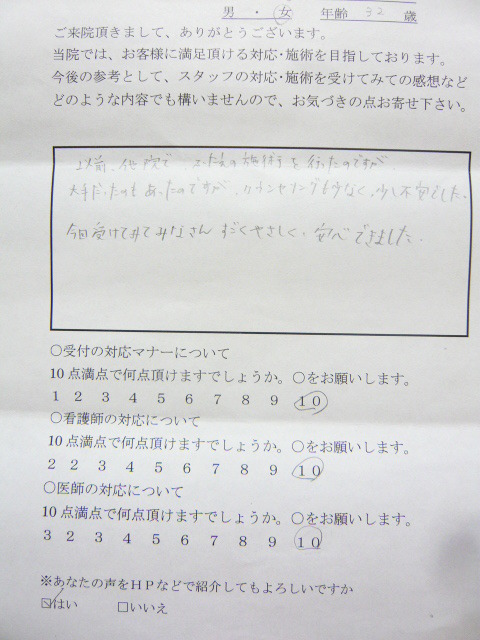 男 ・ 女 年齢 32 歳
ご来院頂きまして、ありがとうございます。
当院では、お客様に満足頂ける対応・施術を目指しております。
今後の参考として、スタッフの対応・施術を受けてみての感想など
どのような内容でも構いませんので、お気づきの点お寄せ下さい。
以前、他院で ふたえの施術を行ったのですが、
大手だったのもあったのですが、カウンセリングも少なく、少し不安でした。
今回受けてみてみなさん すごくやさしく、安心できました。
○受付の対応マナーについて
10点満点で何点頂けますでしょうか。○をお願いします。
1 2 3 4 5 6 7 8 9 10
○看護師の対応について
10点満点で何点頂けますでしょうか。○をお願いします。
2 2 3 4 5 6 7 8 9 10
○医師の対応について
10点満点で何点頂けますでしょうか。○をお願いします。
3 2 3 4 5 6 7 8 9 10
※あなたの声をHPなどで紹介してもよろしいですか
☑はい □いいえ